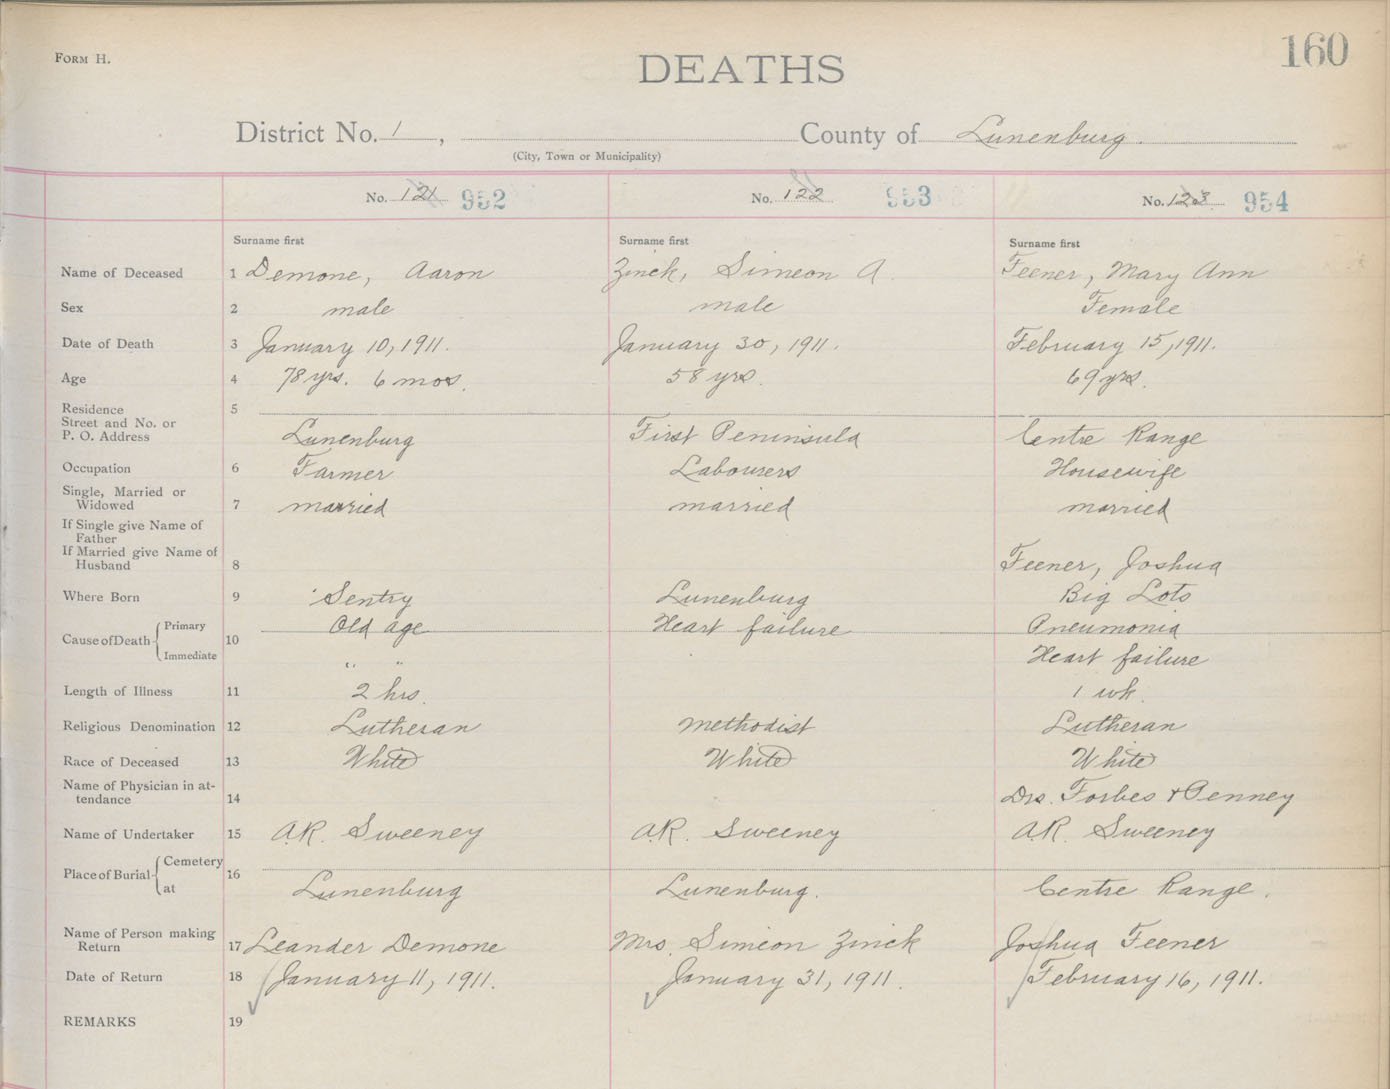 FORM H.
160
DEATHS
District No. 1, County of Lunenburg.
(City, Town or Municipality)
No. 121 952 No. 122 953 No. 123 954
Surname first Surname first Surname first
Name of Deceased 1 Demone, Aaron Zinck, Simeon A. Feener, Mary Ann
Sex 2 male male Female
Date of Death 3 January 10, 1911. January 30, 1911. February 15, 1911.
Age 4 78 yrs. 6 mos. 58 yrs. 69 yrs.
Residence 5
Street and No. or
P. O. Address Lunenburg First Peninsula Centre Range
Occupation 6 Farmer Labourers Housewife
Single, Married or
Widowed 7 married married married
If Single give Name of
Father
If Married give Name of
Husband 8 Feener, Joshua
Where Born 9 Sentry Lunenburg Big Lots
Cause of Death Primary 10 Old age Heart failure Pneumonia
Immediate " " Heart failure
Length of Illness 11 2 hrs. 1 wk.
Religious Denomination 12 Lutheran Methodist Lutheran
Race of Deceased 13 White White White
Name of Physician in at-
tendance 14 Drs. Forbes & Penney
Name of Undertaker 15 A.R. Sweeney A.R. Sweeney A.R. Sweeney
Place of Burial Cemetery 16
at Lunenburg Lunenburg. Centre Range.
Name of Person making
Return 17 Leander Demone Mrs. Simeon Zinck Joshua Feener
Date of Return 18 January 11, 1911. January 31, 1911. February 16, 1911.
REMARKS 19